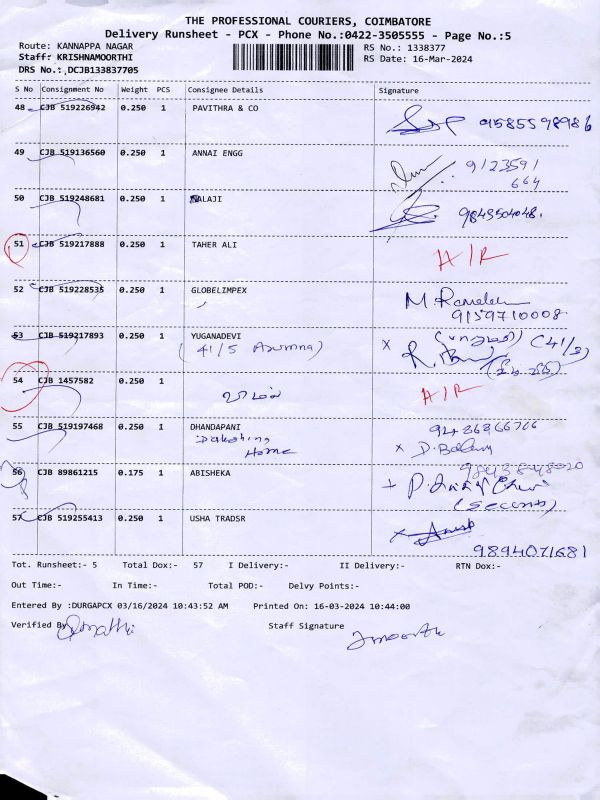 THE PROFESSIONAL COURIERS, COIMBATORE
Delivery Runsheet - PCX - Phone No.:0422-3505555 - Page No.:5
Route: KANNAPPA NAGAR RS No.: 1338377
Staff: KRISHNAMOORTHI RS Date: 16-Mar-2024
DRS No.: DCJB133837705
S No Consignment No Weight PCS Consignee Details Signature
48 CJB 519226942 0.250 1 PAVITHRA & CO
9585598986
49 CJB 519136560 0.250 1 ANNAI ENGG 9123591
664
50 CJB 519248681 0.250 1 BALAJI
9843504048.
51 CJB 519217888 0.250 1 TAHER ALI A/R
52 CJB 519228535 0.250 1 GLOBELIMPEX
9159710008
53 CJB 519217893 0.250 1 YUGANADEVI x (C41/3)
(41/5
54 CJB 1457582 0.250 1 A/R
55 CJB 519197468 0.250 1 DHANDAPANI 9486866766
Home x D.
56 CJB 89861215 0.175 1 ABISHEKA
(second)
57 CJB 519255413 0.250 1 USHA TRADSR x
9894071681
Tot. Runsheet:- 5 Total Dox:- 57 I Delivery:- II Delivery:- RTN Dox:-
Out Time:- In Time:- Total POD:- Delvy Points:-
Entered By :DURGAPCX 03/16/2024 10:43:52 AM Printed On: 16-03-2024 10:44:00
Verified By Staff Signature